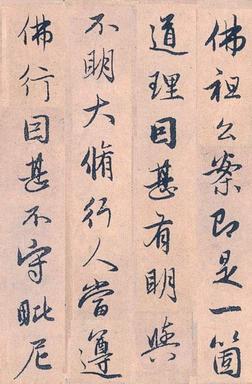 佛祖公案即是一箇
道理因甚有明與
不明大脩行人當遵
佛行因甚不守毗尼